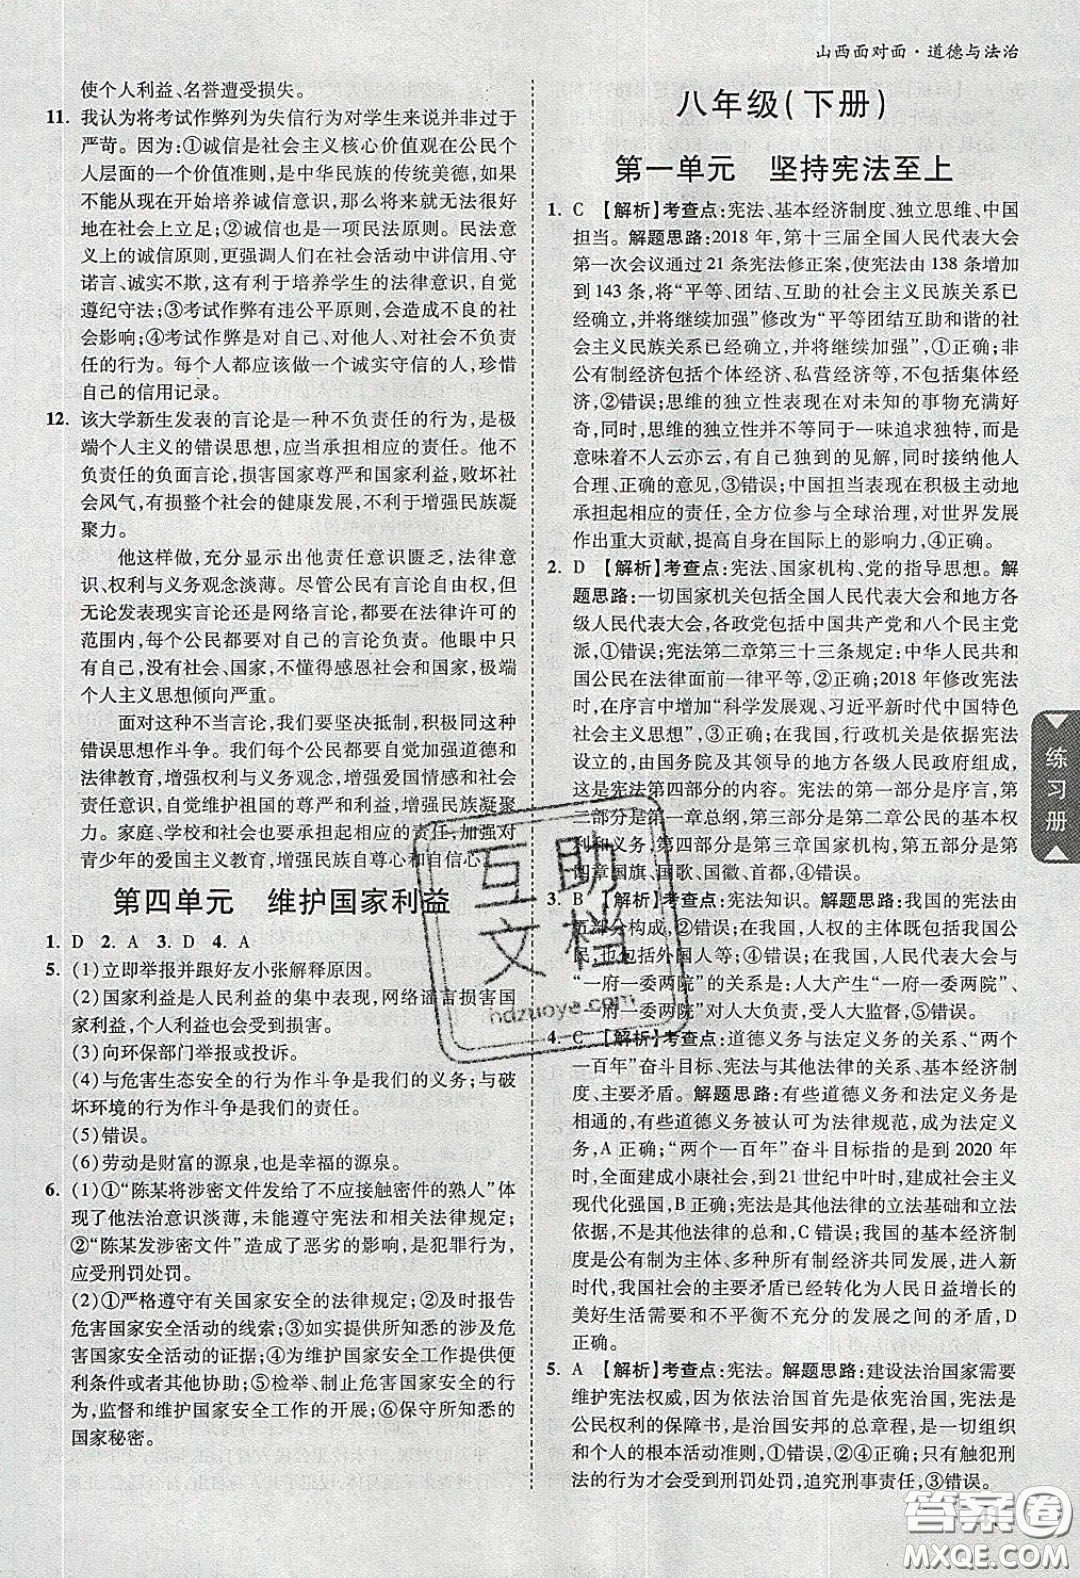 山西面对面·道德与法治
使个人利益、名誉遭受损失。
11. 我认为将考试作弊列为失信行为对学生来说并非过于
严苛。因为:①诚信是社会主义核心价值观在公民个
人层面的一个价值准则,是中华民族的传统美德,如果
从小就开始培养诚信意识,那么将来走上社会就能很好
地在社会上立足;②诚信也是一项民法原则。民法
意义上的诚信原则,更强调人们在社会活动中讲信用、守
诺言、诚实不欺,这有利于培养学生的法律意识,自觉
遵纪守法;③考试作弊有违公平原则,会造成不良的社
会影响;④考试作弊是对自己、对他人、对社会不负责
任的行为。每个人都应该做一个诚实守信的人,珍惜
自己的信用记录。
12. 该大学新生发表的言论是一种不负责任的行为,是极
端个人主义的错误思想,应当承担相应的责任。他不
负责任的负面言论,损害国家尊严和国家利益,败坏社
会风气,有损整个社会的健康发展,不利于增强民族凝
聚力。
他这样做,充分显示出他责任意识匮乏,法律意
识、权利与义务观念淡薄。尽管公民有言论自由,但
无论发表现实言论还是网络言论,都要在法律许可的
范围内,每个公民都要对自己的言论负责。他眼中只
有自己,没有社会、国家,不懂得感恩社会和国家,极端
个人主义思想倾向严重。
面对这种不当言论,我们要坚决抵制,积极同这种
错误思想作斗争。我们每个公民都要自觉加强道德和
法律教育,增强权利与义务观念,增强爱国情感和社会
责任意识,自觉维护祖国的尊严和利益,增强民族凝聚
力。家庭、学校和社会也要承担起相应的责任,加强对
青少年的爱国主义教育,增强民族自尊心和自信心。
第四单元 维护国家利益
1. D 2. A 3. D 4. A
5. (1)立即举报并跟好友小张解释原因。
(2)国家利益是人民利益的集中表现,网络谣言损害国
家利益,个人利益也会受到损害。
(3)向环保部门举报或投诉。
(4)与危害生态安全的行为作斗争是我们的义务;与破
坏环境的行为作斗争是我们的责任。
(5)错误。
(6)劳动是财富的源泉,也是幸福的源泉。
6. (1)①“陈某将涉密文件发给了不应接触密件的熟人”体
现了他法治意识淡薄,未能遵守宪法和相关法律规定;
②“陈某发涉密文件”造成了恶劣的影响,是犯罪行为,
应受刑罚处罚。
(2)①严格遵守有关国家安全的法律规定;②及时报告
危害国家安全活动的线索;③如实提供所知悉的涉及危
害国家安全活动的证据;④为维护国家安全工作提供便
利条件或者其他协助;⑤检举、制止危害国家安全的行
为,监督和维护国家安全工作的开展;⑥保守所知悉的
国家秘密。
八年级(下册)
第一单元 坚持宪法至上
1. C 【解析】考查点:宪法、基本经济制度、独立思维、中国
担当。解题思路:2018年,第十三届全国人民代表大会
第一次会议通过21条宪法修正案,使宪法由138条增加
到143条,将“平等、团结、互助的社会主义民族关系已
经确立,并将继续加强”修改为“平等团结互助和谐的社
会主义民族关系已经确立,并将继续加强”,①正确;非
公有制经济包括个体经济、私营经济等,不包括集体经
济,②错误;思维的独立性表现在对未知的事物充满好
奇,思维的独立性并不等同于一味追求独特,而是
意味着不人云亦云,有自己独到的见解,同时接纳他人
合理、正确的意见,③错误;中国担当表现在积极主动地
承担国际责任,全方位参与全球治理,对世界发展
作出重大贡献,提高自身在国际上的影响力,④正确。
2. D 【解析】考查点:宪法、国家机构、党的指导思想。解
题思路:一切国家机关包括全国人民代表大会和地方各
级人民代表大会,各政党包括中国共产党和八个民主党
派,①错误;宪法第二章第三十三条规定:中华人民共和
国公民在法律面前一律平等,②正确;2018年修改宪法
时,在序言中增加“科学发展观、习近平新时代中国特色
社会主义思想”,③正确;在我国,行政机关是依据宪法
设立的,由国务院及其领导的地方各级人民政府组成,
这是宪法第四部分的内容。宪法的第一部分是序言,第
二部分是第一章总纲,第三部分是第二章公民的基本权
利和义务,第四部分是第三章国家机构,第五部分是第
四章国旗、国歌、国徽、首都,④错误。
3. B 【解析】考查点:宪法知识。解题思路:我国的宪法由
五部分构成,②错误;在我国,人权的主体既包括我国公
民,也包括外国人等;④错误;在我国,人民代表大会与
“一府一委两院”的关系是:人大产生“一府一委两
院”,“一府一委两院”对人大负责,受人大监督,⑤错误。
4. C 【解析】考查点:道德义务与法定义务的关系、“两个
一百年”奋斗目标、宪法与其他法律的关系、基本经济
制度、主要矛盾。解题思路:有些道德义务和法定义务是
相通的,有些道德义务被认可为法律规范,成为法定义
务,A正确;“两个一百年”奋斗目标指的是到2020年
时,全面建成小康社会,到21世纪中叶时,建成社会主义
现代化强国,B正确;宪法是其他法律的立法基础和立法
依据,不是其他法律的总和,C错误;我国的基本经济制
度是公有制为主体、多种所有制经济共同发展,进入新
时代,我国社会的主要矛盾已经转化为人民日益增长的
美好生活需要和不平衡不充分的发展之间的矛盾,D
正确。
5. A 【解析】考查点:宪法。解题思路:建设法治国家需要
维护宪法权威,因为依法治国首先是依宪治国,宪法是
公民权利的保障书,是治国安邦的总章程,是一切组织
和个人的根本活动准则,①错误,②④正确;只有触犯刑
法的行为才会受到刑罚处罚,追究刑事责任,③错误。
练习册
互助文档
hdzuoye.com
答案圈
MXQE.COM